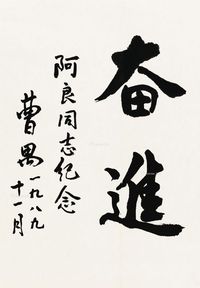 奋進
阿良同志纪念
曹禺一九八九
十一月